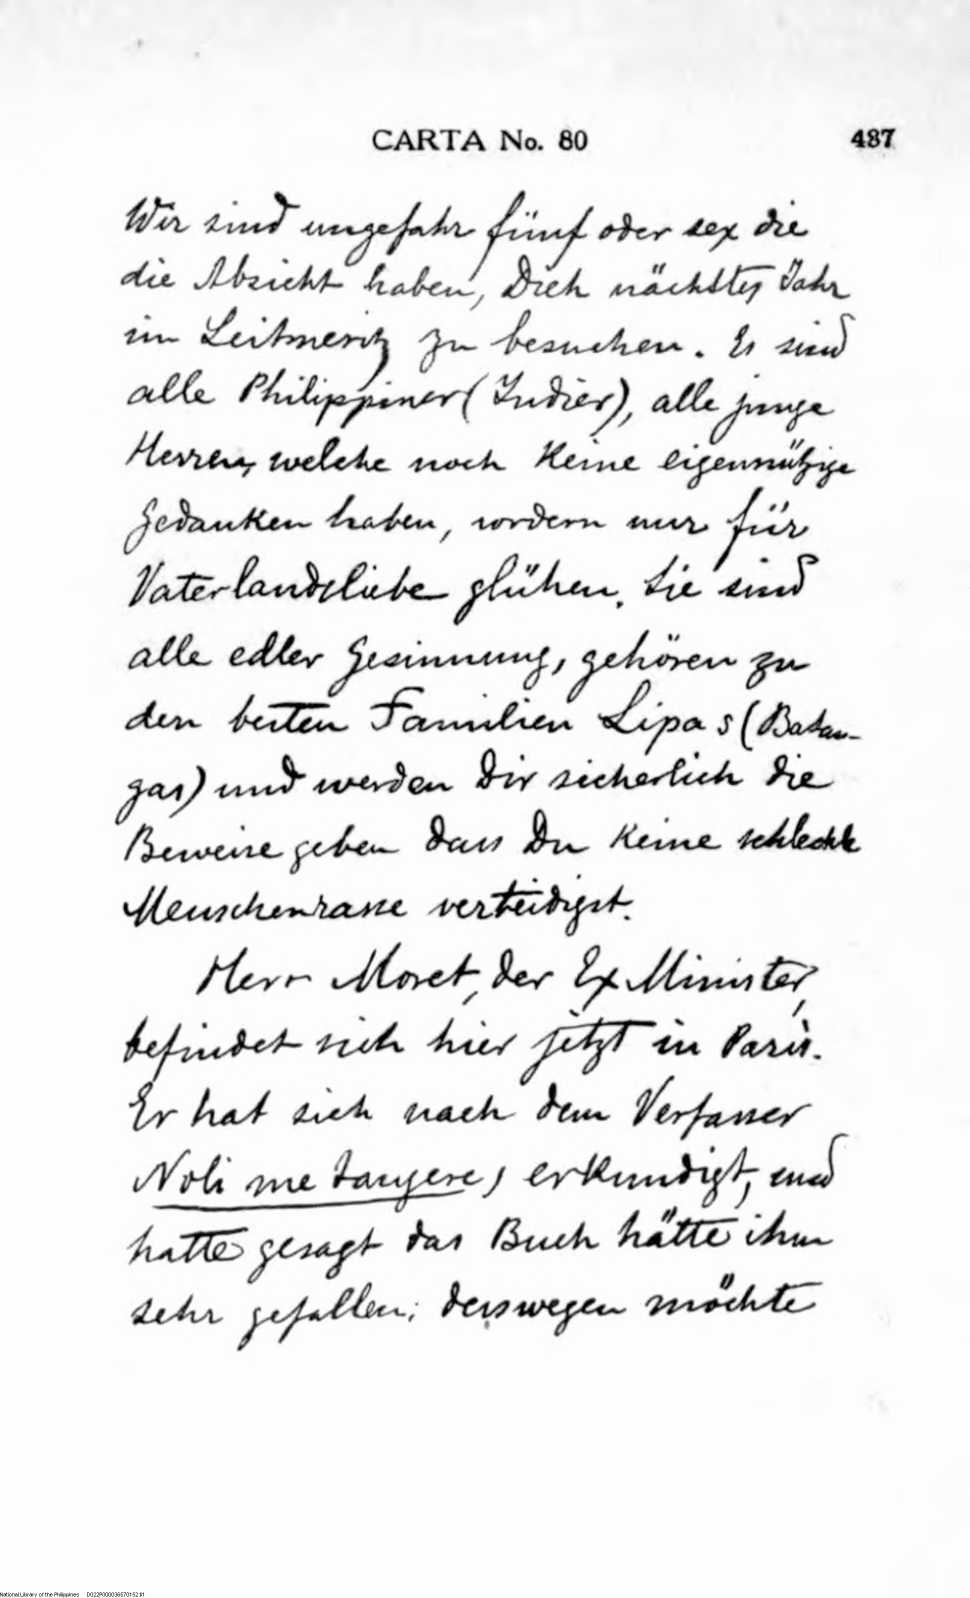 CARTA No. 80 437
Wir sind ungefahr fünf oder sex die
die Absicht haben, Dich nächstes Jahr
im Leitmeritz zu besuchen. Es sind
alle Philippiner (Indier), alle junge
Herren, welche noch keine eigennützige
Gedanken haben, sordern nur für
Vaterlandsliebe glühen. Sie sind
alle edler Gesinnung, gehören zu
den besten Familien Lipas (Batan-
gas) und werden Dir sicherlich die
Beweise geben dass Du keine schlechte
Menschenrasse verteidigst.
Herr Moret, der Ex Minister,
befindet sich hier jetzt in Paris.
Er hat sich nach dem Verfasser
Noli me tangere, erkundigt, und
hatte gesagt das Buch hätte ihm
sehr gefallen; desswegen möchte
National Library of the Philippines